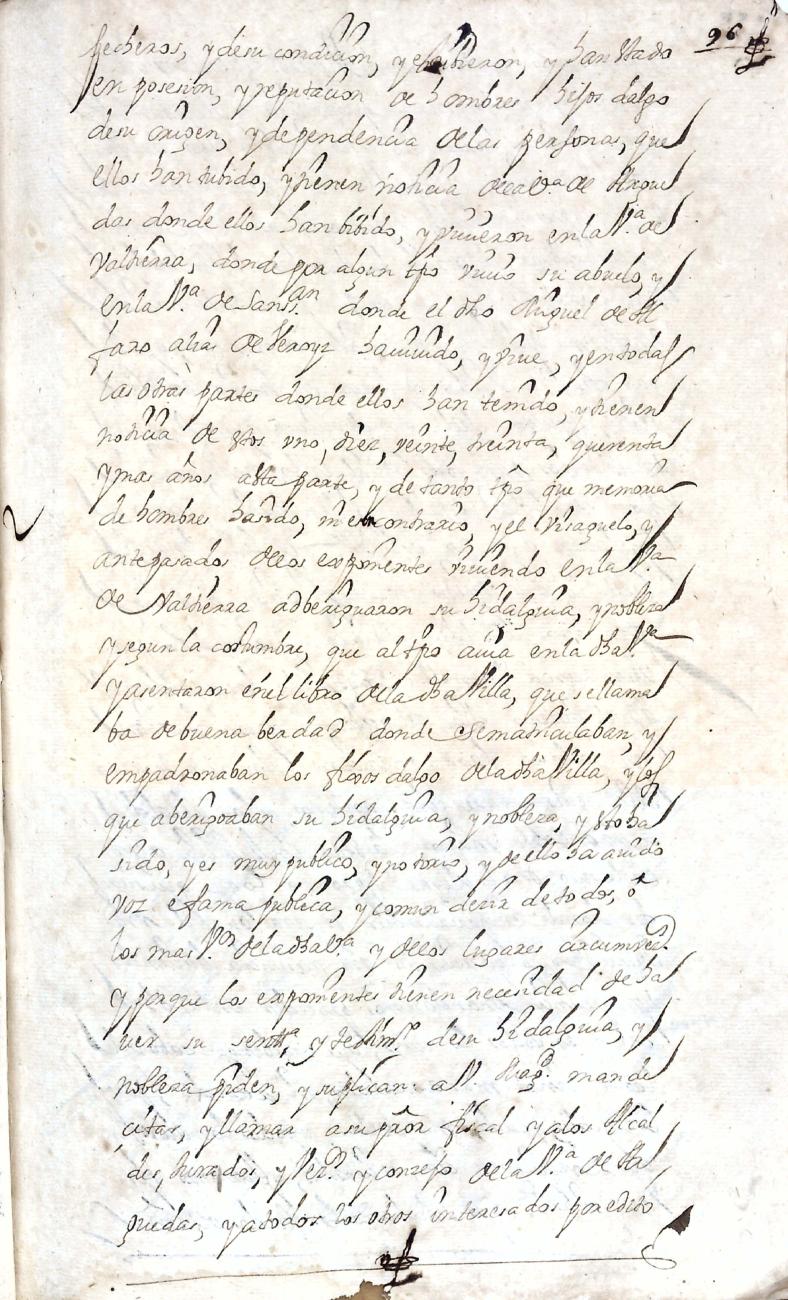 96
pecheros, y desu condicion, y estubieron, y han stado
en posesion, y reputacion de hombres hijos dalgo
desu origen, y dependencia delas personas, que
ellos han tubido, y tienen noticia dela V.ª de Argue
das donde ellos han bibido, y viuieron en la V.ª de
Valtierra, donde por algun tpo viuio su abuelo, y
en la V.ª de Sanss.an donde el dho Miguel de Al
faro alias de Veroyz ha viuido, y viue, y en todas
las otras partes donde ellos han tenido, y tienen
noticia de stos uno, diez, veinte, treinta, quarenta
y mas años asta parte, y de tanto tpo que memoria
de hombres ha sido, ni es contrario, y el visaguelo, y
antepasados dellos exponientes viuiendo en la V.ª
de Valtierra adberiguaron su hidalguia, y nobleza
y segun la costumbre, que al tpo auia en la dha V.ª
y asentaron en el libro dela dha Villa, que se llama
ba de buena berdad donde se matriculaban, y
empadronaban los fijos dalgo dela dha Villa, y los
que aberigoaban su hidalguia, y nobleza, y sto ha
sido, y es muy publico, y notorio, y de ello ha auido
voz e fama publica, y comun decir de todos, o
los mas V.os dela dha V.ª y dellos lugares circumvec.s
y porque los exponientes tienen necesidad de ha
uer su sentt.ª y testim.o desu hidalguia, y
nobleza piden, y suplican a V. Mag.d mande
citar, y llamar a su pror fiscal y alos Alcal
des, Jurados, y Vez.s y conzejo dela V.ª de Ar
guedas, y a todos los otros interesados por edito